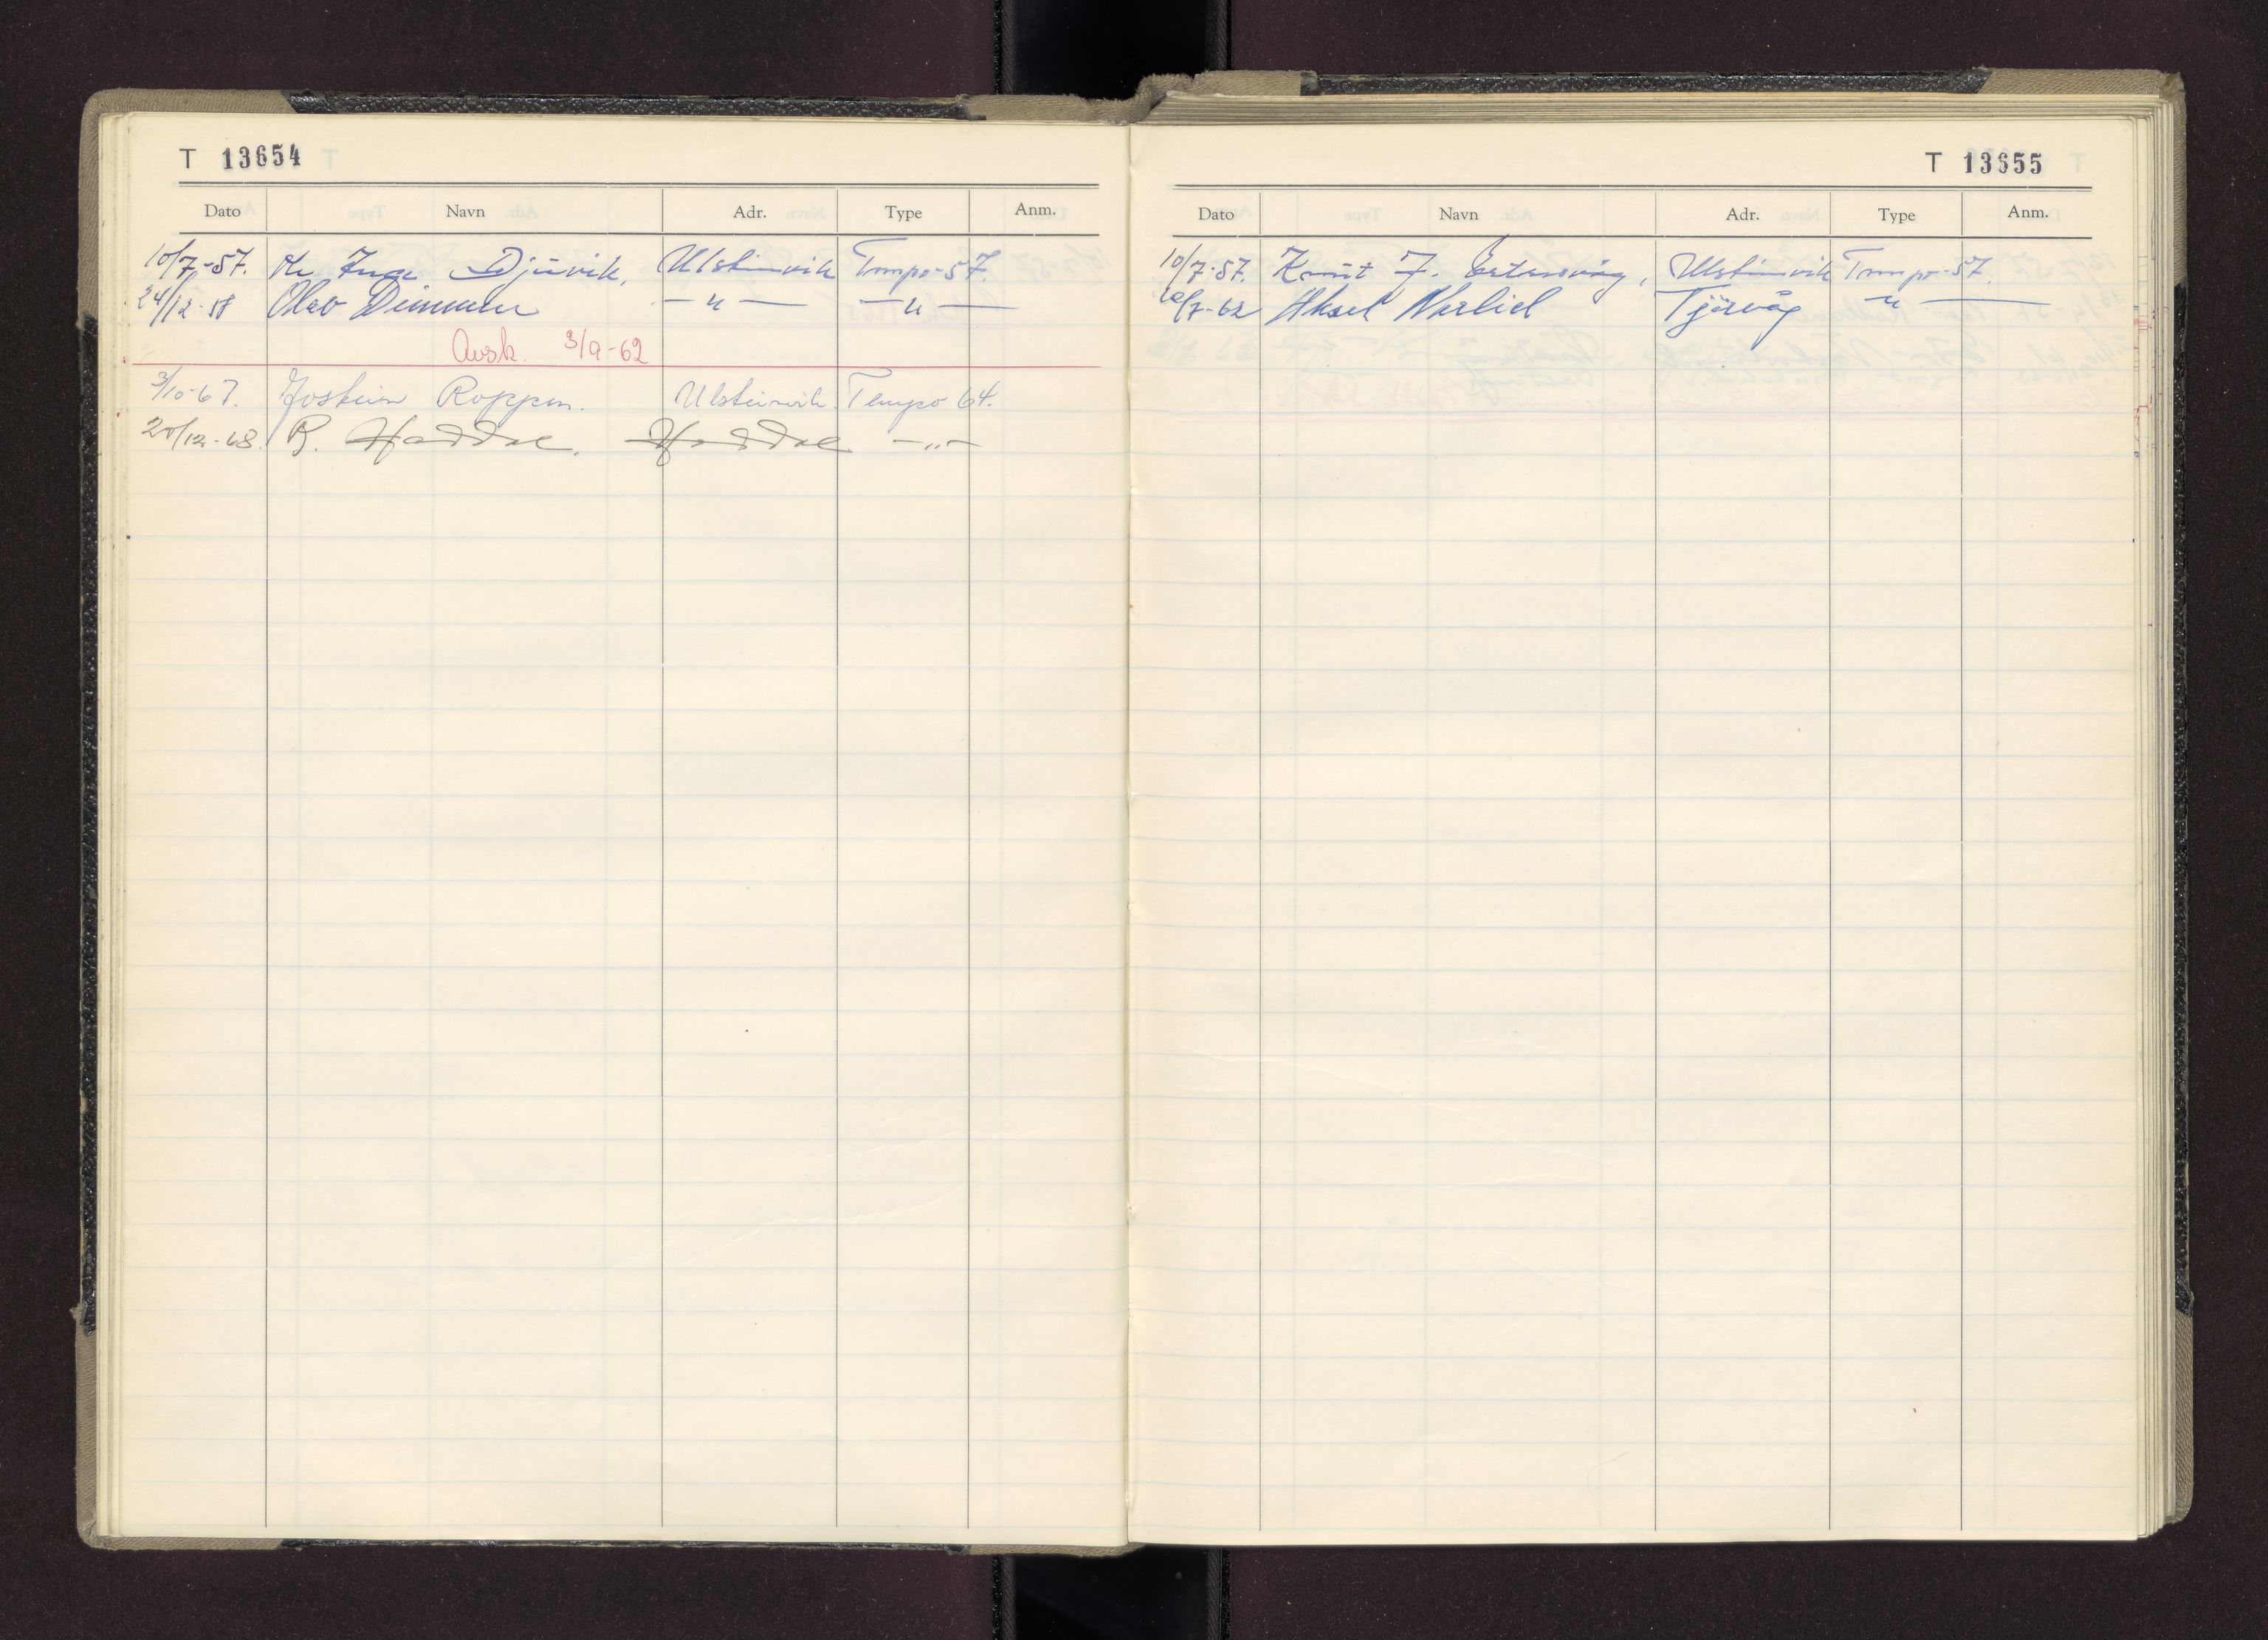 T 13654
Dato Navn Adr. Type Anm.
10/7-57. Ole Inge Djuvik, Ulsteinvik Tempo-57.
24/12-58 Olav Dimmen —"— —"—
Avsk. 3/9-62
3/10-67. Jostein Roppen. Ulsteinvik Tempo 64.
20/12-68. B. Haddal. Haddal —"—
T 13655
Dato Navn Adr. Type Anm.
10/7-57. Knut J. Ulsteinvik Tempo-57.
10/7-62 Aksel Nerlid Tjørvåg "—